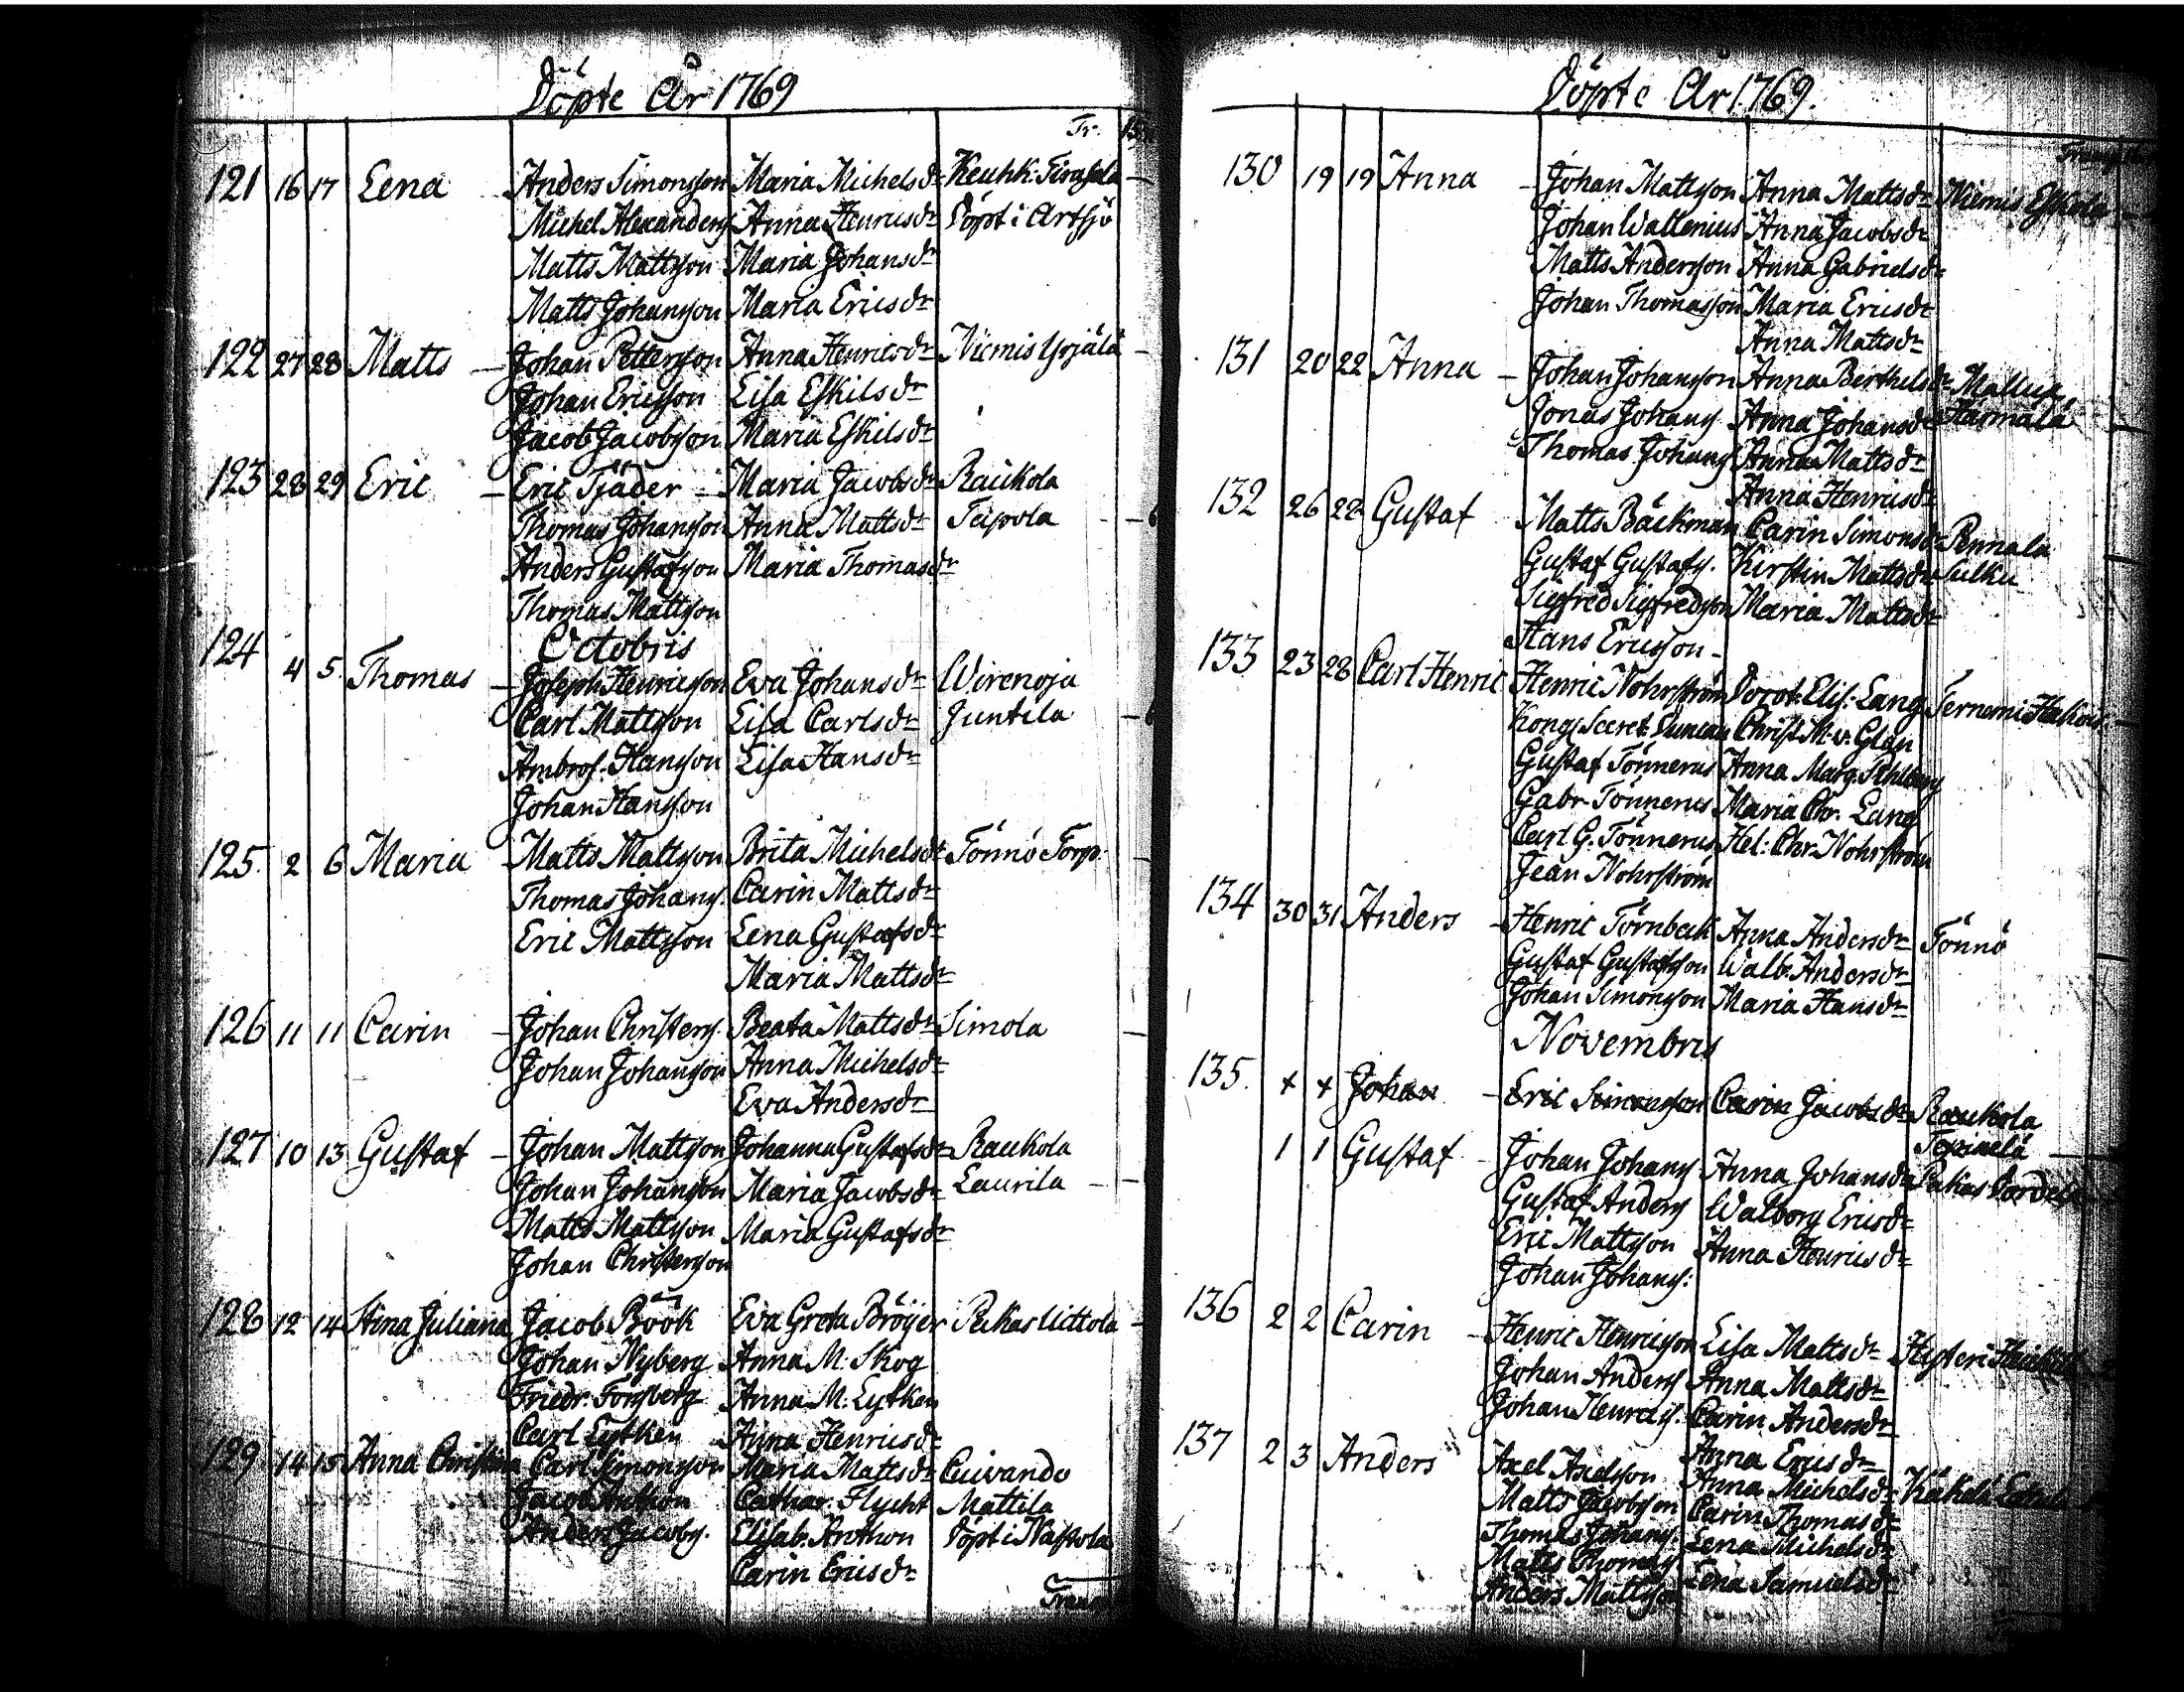 Döpte År 1769
Tr.
121 16 17 Lena – Anders Simonsson Maria Michelsdr Keuhk: Tirasola
Michel Alexanders Anna Henricsdr Döpt i Artsjö
Matts Mattsson Maria Johansdr
Matts Johansson Maria Ericsdr
122 27 28 Matts – Johan Pettersson Anna Henricsdr Niemis Yrjälä
Johan Ericsson Lisa Eskilsdr
Jacob Jacobsson Maria Eskilsdr
123 28 29 Eric – Eric Tjäder – Maria Jacobsdr Rauckola
Thomas Johansson Anna Mattsdr Teipola
Anders Gustafsson Maria Thomasdr
Thomas Mattsson
Octobris
124 4 5. Thomas – Joseph Henricsson Eva Johansdr Wirenoja
Carl Mattsson Lisa Carlsdr Juntila
Ambros. Hansson Lisa Hansdr
Johan Hansson
125. 2 6 Maria – Matts Mattsson Brita Michelsdr Tönnö Torp.
Thomas Johans. Carin Mattsdr
Eric Mattsson Lena Gustafsdr
Maria Mattsdr
126 11 11 Carin – Johan Christers. Beata Mattsdr Simola
Johan Johansson Anna Michelsdr
Eva Andersdr
127 10 13 Gustaf – Johan Mattsson Johanna Gustafsdr Rauckola
Johan Johansson Maria Jacobsdr Laurila
Matts Mattsson Maria Gustafsdr
Johan Christersson
128 12 14 Stina Juliana Jacob Böök Eva Greta Bröijer Pakas Uittola
Johan Nyberg Anna M: Skog
Friedr: Forsberg Anna M. Lytken
Carl Lytken Anna Henricsdr
129 14 15 Anna Christina Carl Simonsson Maria Mattsdr Cuivando
Jacob Anthon Cathar. Flycht Mattila
Anders Jacobs. Elisab. Anthon Döpt i Nastola
Carin Ericsdr
Döpte År 1769.
130 19 19 Anna – Johan Mattsson Anna Mattsdr Niemis Eskola
Johan Wallenius Anna Jacobsdr
Matts Andersson Anna Gabrielsdr
Johan Thomasson Maria Ericsdr
Anna Mattsdr
131 20 22 Anna – Johan Johansson Anna Berthelsdr Mallus
Jonas Johans. Anna Johansdr Harmala
Thomas Johans. Anna Mattsdr
Anna Henricsdr
132 26 28 Gustaf Matts Bäckman Carin Simonsdr Pennala
Gustaf Gustafs. Kirstin Mattsdr Sulku
Sigfred Sigfredsson Maria Mattsdr
Hans Ericsson –
133 23 28 Carl Henric Henric Nohrström Dorot. Elis: Lang Ternemi
Kongs. Secret. Duncan Christ. M. v. Glan
Gustaf Tönnerus Anna Marg.
Gabr. Tönnerus Maria Chr. Lang
Carl G. Tönnerus Hel: Chr. Nohrström
Jean Nohrström
134 30 31 Anders – Henric Törnbeck Anna Andersdr Tönnö
Gustaf Gustafsson Walb. Andersdr
Johan Simonsson Maria Hansdr
Novembris
135. x x Johan – Eric Simonsson Carin Jacobsdr Rauckola
1 1 Gustaf – Johan Johans Anna Johansdr Pakas
Gustaf Anders Walborg Ericsdr
Eric Mattsson Anna Henricsdr
Johan Johans:
136 2 2 Carin – Henric Henricsson Lisa Mattsdr Hysteri
Johan Anders Anna Mattsdr
Johan Henrics. Carin Andersdr
Anna Ericsdr
137 2 3 Anders Axel Axelsson Anna Michelsdr
Matts Jacobsson Carin Thomasdr
Thomas Johans. Lena Michelsdr
Matts Thomas Lena Samuelsdr
Anders Mattsson